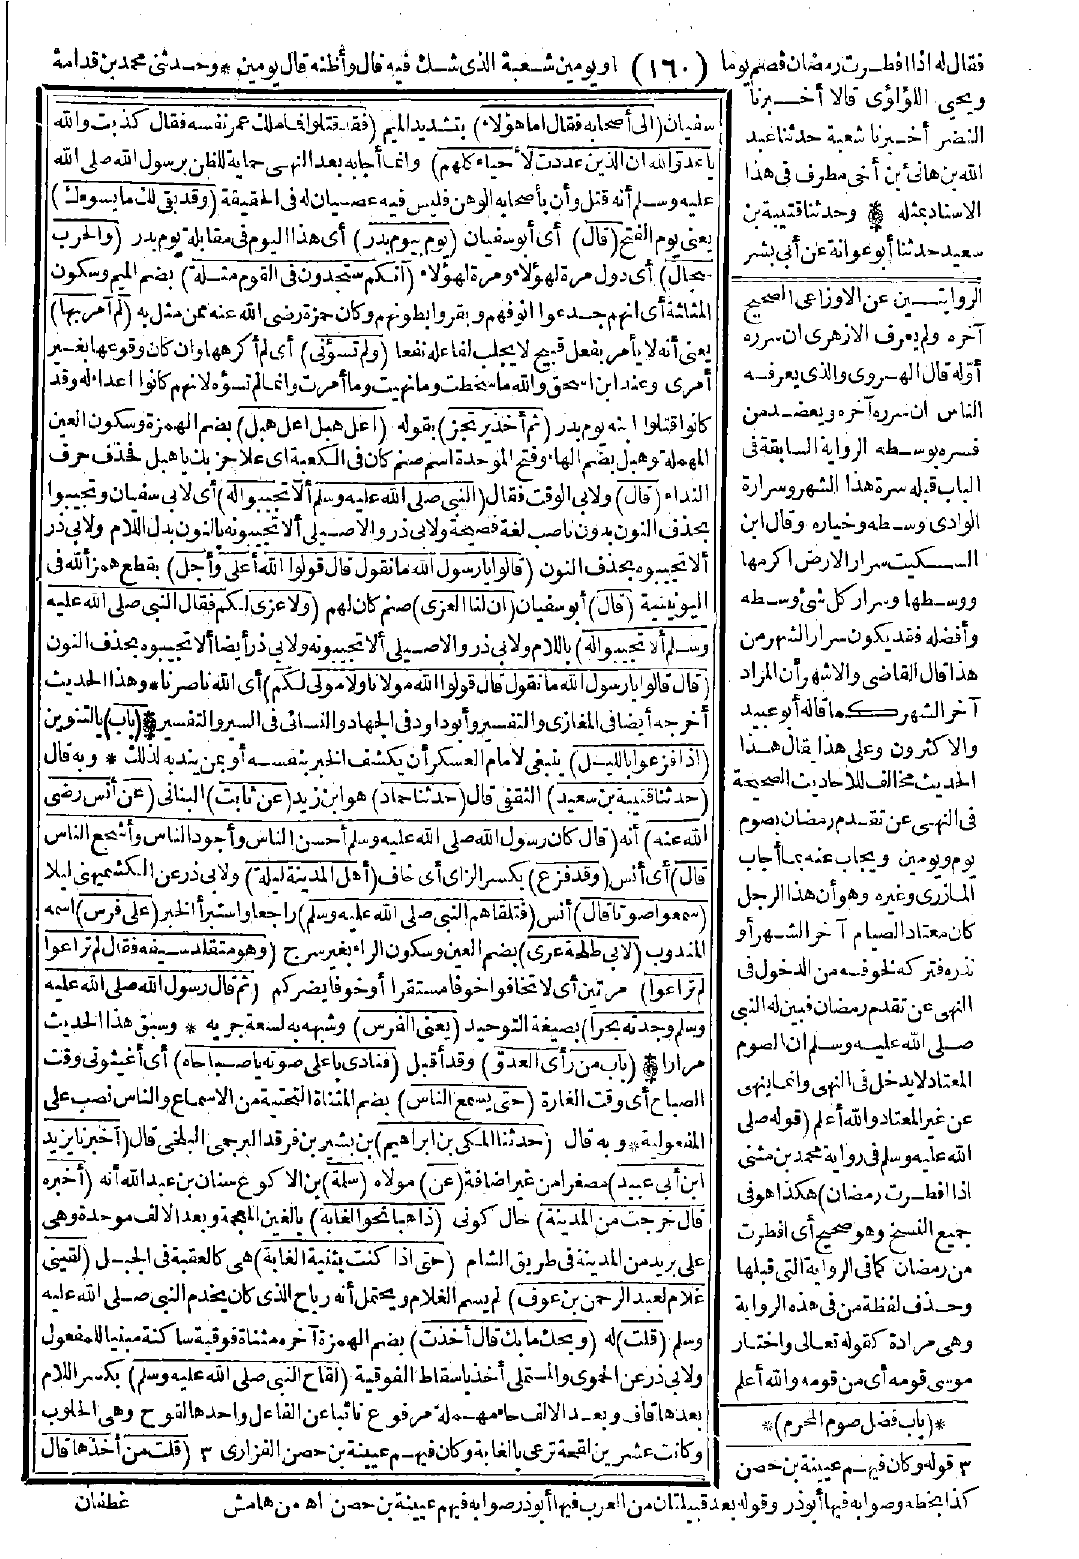 فقال له اذا افطرت رمضان فصم يوما (١٦٠) او يومين شعبة الذى شك فيه قال وأظنه قال يومين * وحدثنى محمد بن قدامة
ويحيى اللؤلؤى قالا أخبرنا
النضر أخبرنا شعبة حدثنا عبد
الله بن هانئ بن أخى مطرف فى هذا
الاسناد بمثله * وحدثنا قتيبة بن
سعيد حدثنا أبو عوانة عن أبى بشر
الروايتين عن الاوزاعى الصحيح
آخره ولم يعرف الازهرى ان سرره
أوّله قال الهروى والذى يعرفه
الناس ان سرره آخره ويعضد من
فسره بوسطه الرواية السابقة فى
الباب قبله سرة هذا الشهر وسرارة
الوادى وسطه وخياره وقال ابن
السكيت سرار الارض اكرمها
ووسطها وسرار كل شئ وسطه
وأفضله فقد يكون سرار الشهر من
هذا قال القاضى والاشهر أن المراد
آخر الشهر كما قاله أبو عبيد
والاكثرون وعلى هذا يقال هذا
الحديث مخالف للاحاديث الصحيحة
فى النهى عن تقدم رمضان بصوم
يوم ويومين ويجاب عنه بما أجاب
المازرى وغيره وهو أن هذا الرجل
كان معتاد الصيام آخر الشهر أو
نذره فتركه لخوفه من الدخول فى
النهى عن تقدم رمضان فبين له النبى
صلى الله عليه وسلم ان الصوم
المعتاد لا يدخل فى النهى وانما ينهى
عن غير المعتاد والله أعلم (قوله صلى
الله عليه وسلم فى رواية محمد بن مثنى
اذا افطرت رمضان) هكذا هو فى
جميع النسخ وهو صحيح أى افطرت
من رمضان كما فى الرواية التى قبلها
وحذف لفظة من فى هذه الرواية
وهى مرادة كقوله تعالى واختار
موسى قومه أى من قومه والله أعلم
*(باب فضل صوم المحرم)*
٣ قوله وكان فيهم عيينة بن حصن
سفيان (الى أصحابه فقال اما هؤلاء) بتشديد الميم (فقد قتلوا فما ملك عمر نفسه فقال كذبت والله
يا عدوّ الله ان الذين عددت لأحياء كلهم) وانما أجابه بعد النهى حماية للظن برسول الله صلى الله
عليه وسلم أنه قتل وأن بأصحابه الوهن فليس فيه عصيان له فى الحقيقة (وقد بقى لك ما يسوءك)
يعنى يوم الفتح (قال) أى أبو سفيان (يوم بيوم بدر) أى هذا اليوم فى مقابلة يوم بدر (والحرب
سجال) أى دول مرة لهؤلاء ومرة لهؤلاء (انكم ستجدون فى القوم مثلة) بضم الميم وسكون
المثلثة أى انهم جدعوا انوفهم وبقروا بطونهم وكان حمزة رضى الله عنه ممن مثل به (لم آمر بها)
يعنى أنه لا يأمر بفعل قبيح لا يجلب لفاعله نفعا (ولم تسؤنى) أى لم أكرهها وان كان وقوعها بغير
أمرى وعند ابن اسحق والله ما سخطت وما نهيت وما أمرت وانما لم تسؤه لانهم كانوا اعداء له وقد
كانوا قتلوا ابنه يوم بدر (ثم أخذ يرتجز) بقوله (اعل هبل اعل هبل) بضم الهمزة وسكون العين
المهملة وهبل بضم الهاء وفتح الموحدة اسم صنم كان فى الكعبة اى علا حزبك يا هبل فحذف حرف
النداء (قال) ولابى الوقت فقال (النبى صلى الله عليه وسلم ألا تجيبوا له) أى لابى سفيان وتجيبوا
بحذف النون بدون ناصب لغة فصيحة ولابى ذر والاصيلى ألا تجيبونه بالنون بدل اللام ولابى ذر
ألا تجيبوه بحذف النون (قالوا يا رسول الله ما نقول قال قولوا الله أعلى وأجل) بقطع همز ألله فى
اليونينية (قال) أبو سفيان (ان لنا العزى) صنم كان لهم (ولا عزى لكم فقال النبى صلى الله عليه
وسلم ألا تجيبوا له) باللام ولابى ذر والاصيلى ألا تجيبونه ولابى ذر أيضا ألا تجيبوه بحذف النون
(قال قالوا يا رسول الله ما نقول قال قولوا الله مولانا ولا مولى لكم) أى الله ناصرنا * وهذا الحديث
أخرجه أيضا فى المغازى والتفسير وأبو داود فى الجهاد والنسائى فى السير والتفسير * (باب) بالتنوين
(اذا فزعوا بالليل) ينبغى لامام العسكر أن يكشف الخبر بنفسه أو بمن يندبه لذلك * وبه قال
(حدثنا قتيبة بن سعيد) الثقفى قال (حدثنا حماد) هو ابن زيد (عن ثابت) البنانى (عن أنس رضى
الله عنه) أنه (قال كان رسول الله صلى الله عليه وسلم أحسن الناس وأجود الناس وأشجع الناس
قال) أى أنس (وقد فزع) بكسر الزاى أى خاف (أهل المدينة ليلة) ولابى ذر عن الكشميهنى ليلا
(سمعوا صوتا قال) أنس (فتلقاهم النبى صلى الله عليه وسلم) راجعا واستبرأ الخبر (على فرس) اسمه
المندوب (لابى طلحة عرى) بضم العين وسكون الراء بغير سرج (وهو متقلد سيفه فقال لم تراعوا
لم تراعوا) مرتين أى لا تخافوا خوفا مستقرا أو خوفا يضركم (ثم قال رسول الله صلى الله عليه
وسلم وجدته بحرا) بصيغة التوحيد (يعنى الفرس) وشبهه به لسعة جريه * وسبق هذا الحديث
مرارا * (باب من رأى العدوّ) وقد أقبل (فنادى باعلى صوته يا صباحاه) أى أغيثونى وقت
الصباح أى وقت الغارة (حتى يسمع الناس) بضم المثناة التحتية من الاسماع والناس نصب على
المفعولية * وبه قال (حدثنا المكى بن ابراهيم) بن بشير بن فرقد البرجمى البلخى قال (أخبرنا يزيد
ابن أبى عبيد) مصغرا من غير اضافة (عن) مولاه (سلمة) بن الاكوع سنان بن عبد الله أنه (أخبره
قال خرجت من المدينة) حال كونى (ذاهبا نحو الغابة) بالغين المعجمة وبعد الالف موحدة وهى
على بريد من المدينة فى طريق الشام (حتى اذا كنت بثنية الغابة) هى كالعقبة فى الجبل (لقينى
غلام لعبد الرحمن بن عوف) لم يسم الغلام ويحتمل أنه رباح الذى كان يخدم النبى صلى الله عليه
وسلم (قلت) له (ويحك ما بك قال أخذت) بضم الهمزة آخره مثناة فوقية ساكنة مبنيا للمفعول
ولابى ذر عن الحموى والمستملى أخذ باسقاط الفوقية (لقاح النبى صلى الله عليه وسلم) بكسر اللام
بعدها قاف وبعد الالف حاء مهملة مرفوع نائبا عن الفاعل واحدها لقوح وهى الحلوب
وكانت عشرين لقحة ترعى بالغابة وكان فيهم عيينة بن حصن الفزارى ٣ (قلت من أخذها قال
كذا بخطه وصوابه فيها أبو ذر وقوله بعد قبيلتان من العرب فيها أبو ذر صوابه فيهم عيينة بن حصن اه من هامش
غطفان